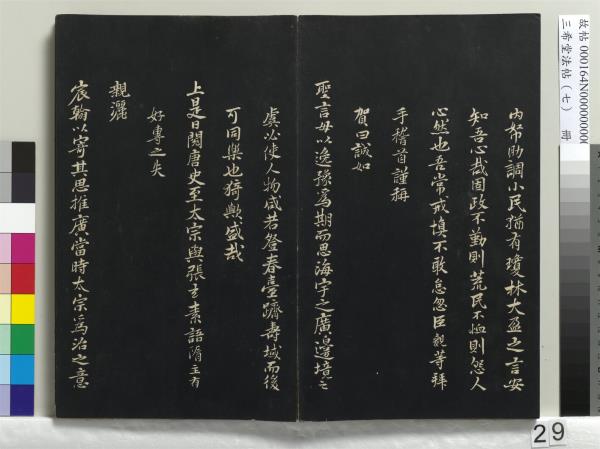 內帑助調小民猶有瓊林大盈之言安
知吾心哉固政不勤則荒民不恤則怨人
心然也吾常戒慎不敢怠忽臣親等拜
手稽首謹稱
賀曰誠如
聖言毋以逸豫為期而思海宇之廣邊培之
虞必使人物咸若登春臺躋壽域而後
可同樂也猗歟盛哉
上是日閱唐史至太宗與張玄素語隋主有
好專之失
親灑
宸翰以寄其思推廣當時太宗為治之意
故帖 000164N000000000
三希堂法帖(七) 冊
29